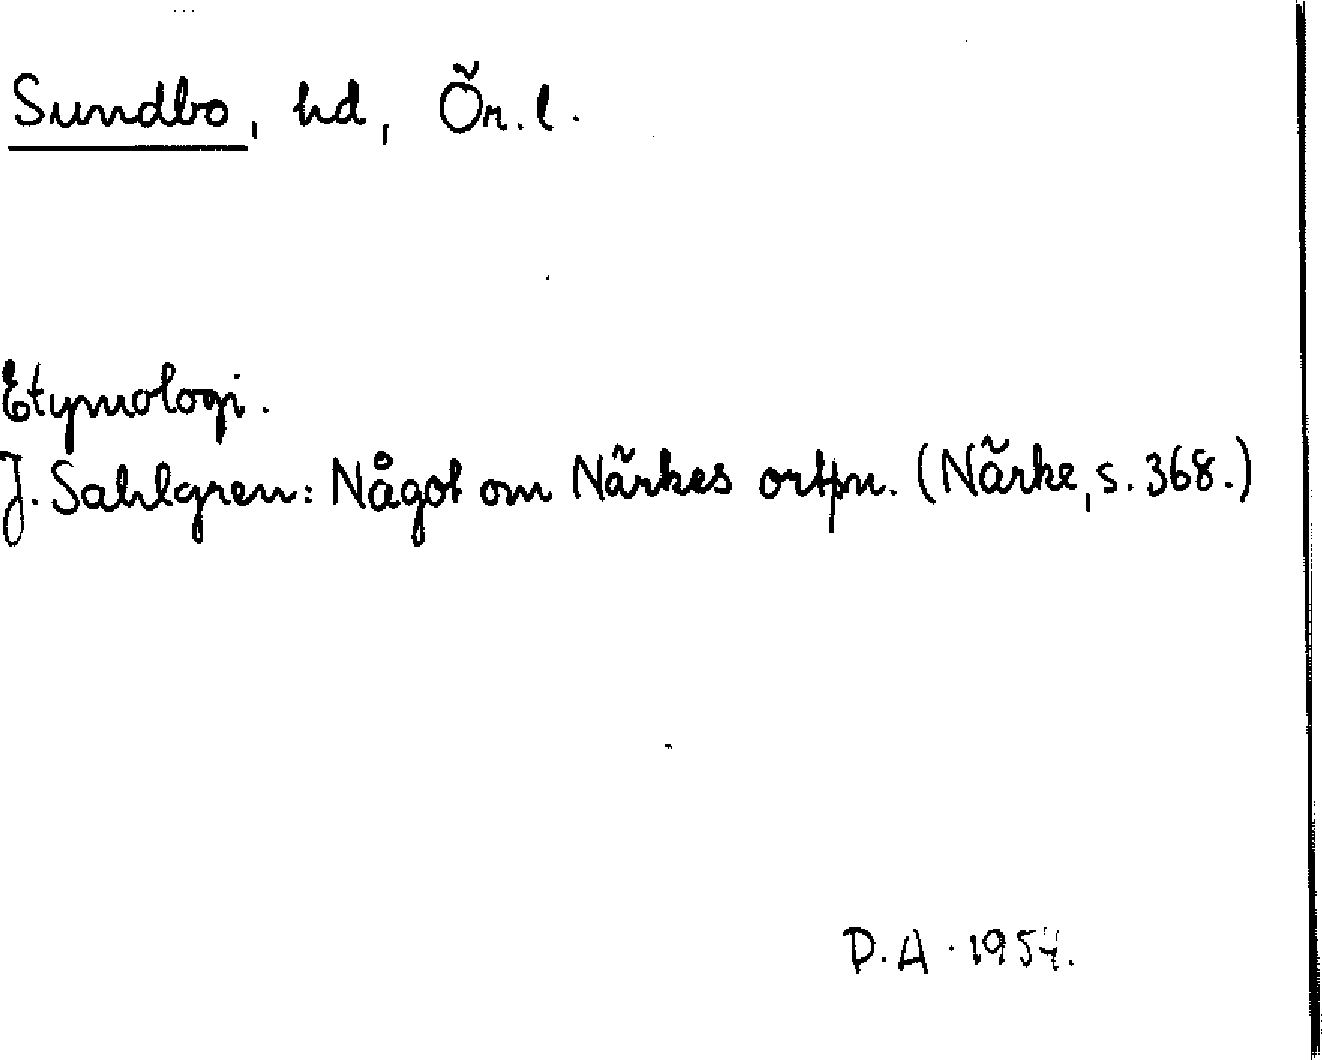 Sundbo, hd, Ör. l.
Etymologi.
J. Sahlgren: Något om Närkes ortpn. (Närke, s. 368.)
D. A. 1954.